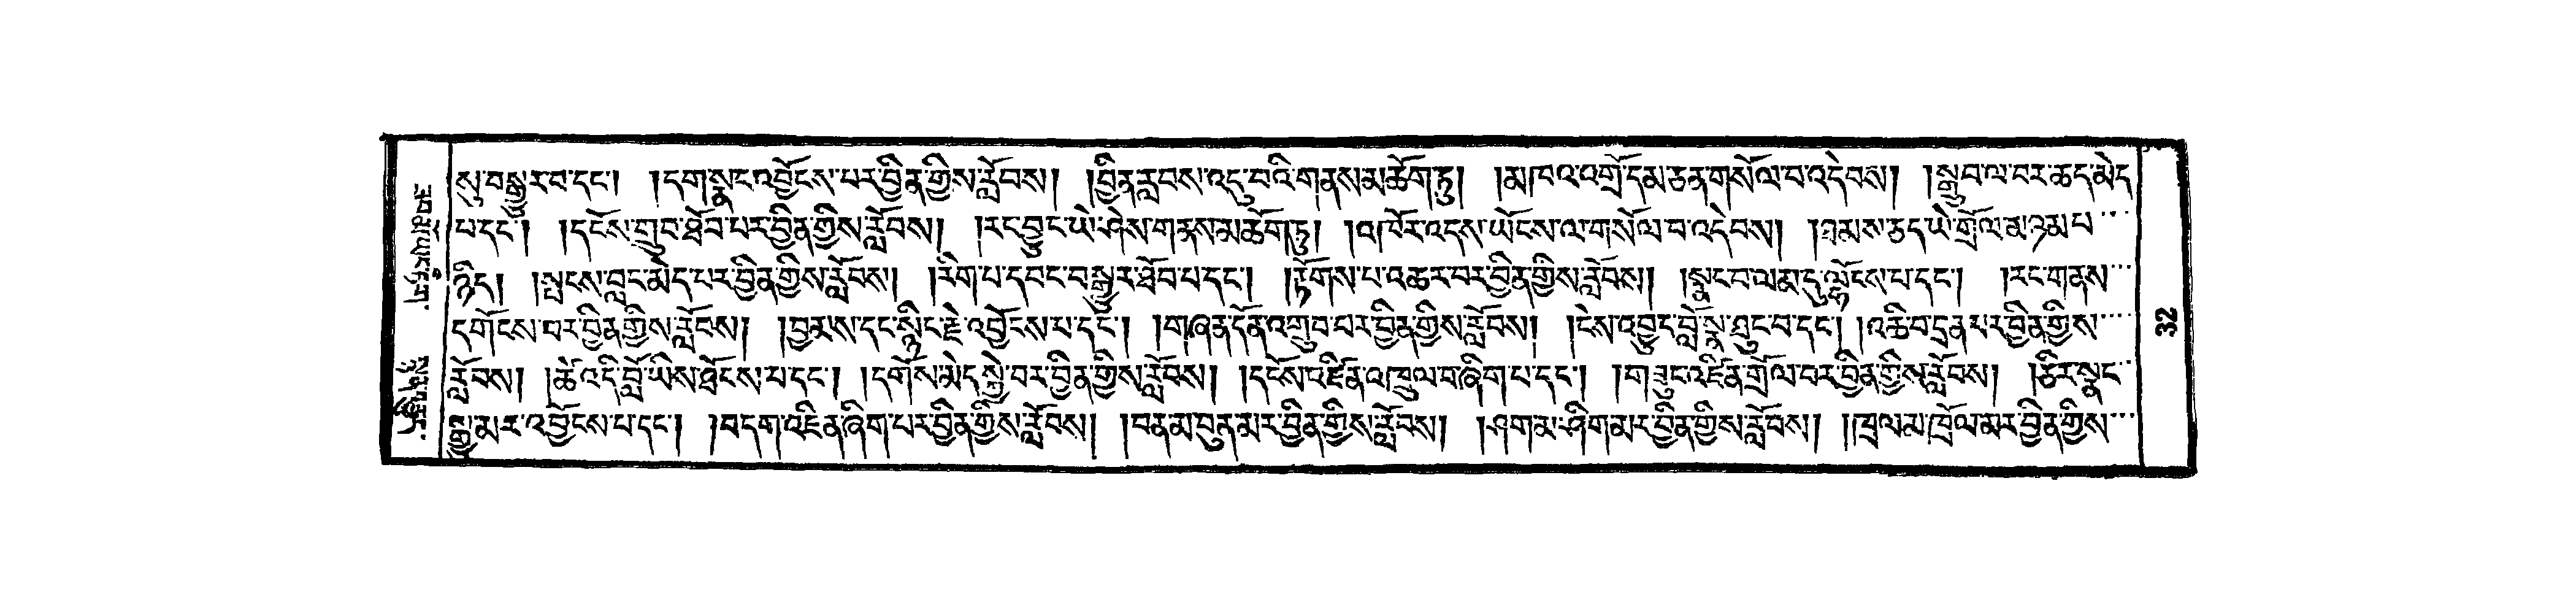 སུ་བསྒྱུར་བ་དང་། །དག་སྣང་འབྱོངས་པར་བྱིན་གྱིས་རློབས། །བྱིན་རླབས་འདུ་བའི་གནས་མཆོག་ཏུ། །མཁའ་འགྲོ་དམ་ཅན་གསོལ་བ་འདེབས། །སྒྲུབ་ལ་བར་ཆད་མེད་
པ་དང་། །དངོས་གྲུབ་ཐོབ་པར་བྱིན་གྱིས་རློབས། །རང་བྱུང་ཡེ་ཤེས་གནས་མཆོག་ཏུ། །འཁོར་འདས་ཡོངས་ལ་གསོལ་བ་འདེབས། །ཐམས་ཅད་ཡེ་གྲོལ་མ་ཉམ་པ་
ཉིད། །སྤངས་བླང་མེད་པར་བྱིན་གྱིས་རློབས། །རིག་པ་དབང་བསྒྱུར་ཐོབ་པ་དང་། །རྟོགས་པ་འཆར་བར་བྱིན་གྱིས་རློབས། །སྣང་བ་ལམ་དུ་ལྷོངས་པ་དང་། །རང་གནས་
དགོངས་པར་བྱིན་གྱིས་རློབས། །བྱམས་དང་སྙིང་རྗེ་འབྱོངས་པ་དང་། །གཞན་དོན་འགྲུབ་པར་བྱིན་གྱིས་རློབས། །ངེས་འབྱུང་བློ་སྣ་ཐུང་བ་དང་། །འཆི་བ་དྲན་པར་བྱིན་གྱིས་
རློབས། །ཚེ་འདི་བློ་ཡིས་ཐོངས་པ་དང་། །དགོས་མེད་སྐྱེ་བར་བྱིན་གྱིས་རློབས། །དངོས་འཛིན་འཁྲུལ་བ་ཞིག་པ་དང་། །གཟུང་འཛིན་གྲོལ་བར་བྱིན་གྱིས་རློབས། །ཅིར་སྣང་
སྒྱུ་མར་འབྱོངས་པ་དང་། །བདག་འཛིན་ཞིག་པར་བྱིན་གྱིས་རློབས། །བན་མ་བུན་མར་བྱིན་གྱིས་རློབས། །ཤག་མ་ཤིག་མར་བྱིན་གྱིས་རློབས། །ཁྲལ་མ་ཁྲོལ་མར་བྱིན་གྱིས་